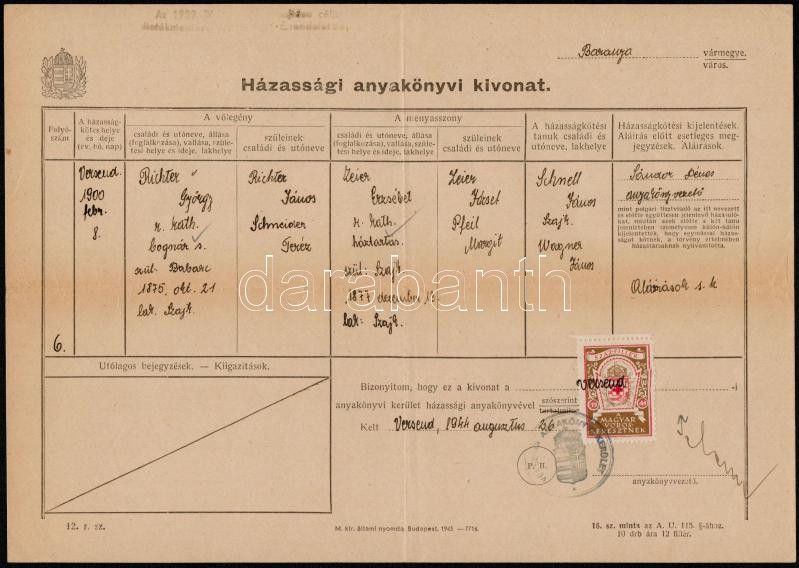 Az 1939. IV
Baranya vármegye.
város.
Házassági anyakönyvi kivonat.
Folyó-
szám
A házasság-
kötés helye
és ideje
(év, hó, nap)
A vőlegény
családi és utóneve, állása
(foglalkozása), vallása, szüle-
tési helye és ideje, lakhelye
szüleinek
családi és utóneve
A menyasszony
családi és utóneve, állása
(foglalkozása), vallása, szüle-
tési helye és ideje, lakhelye
szüleinek
családi és utóneve
A házasságkötési
tanuk családi és
utóneve, lakhelye
Házasságkötési kijelentések.
Aláírás előtt esetleges meg-
jegyzések. Aláírások.
6.
Versend.
1900
febr.
8.
Richter
György
r. kath.
bognár s.
szül. Babarc
1875. okt. 21
lak. Szajk.
Richter
János
Schneider
Teréz
Zeier
Erzsébet
r. kath.
háztartás.
szül: Szajk
1877 december 15.
lak: Szajk.
Zeier
József
Pfeil
Margit
Schnell
János
Szajk.
Wagner
János
Sándor Dénes
anyakönyvvezető
mint polgári tisztviselő az itt nevezett
és előtte együttesen jelenlévő házasuló-
kat, miután azok előtte a két tanu
jelenlétében személyesen külön-külön
kijelentették, hogy egymással házas-
ságot kötnek, a törvény értelmében
házastársaknak nyilvánította.
Aláírások s. k
darabanth
Utólagos bejegyzések. — Kiigazítások.
Bizonyítom, hogy ez a kivonat a versend -i
anyakönyvi kerület házassági anyakönyvével szószerint
Kelt Versend, 1944 augusztus 26
P. H.
EZAZFILLÉR
A
MAGYAR
VÖRÖS-
KERESZTNEK
anyakönyvvezető.
12. r. sz.
M. kir. állami nyomda. Budapest, 1943 — 7716.
16. sz. minta az A. U. 115. §-ához.
10 drb ára 12 fillér.